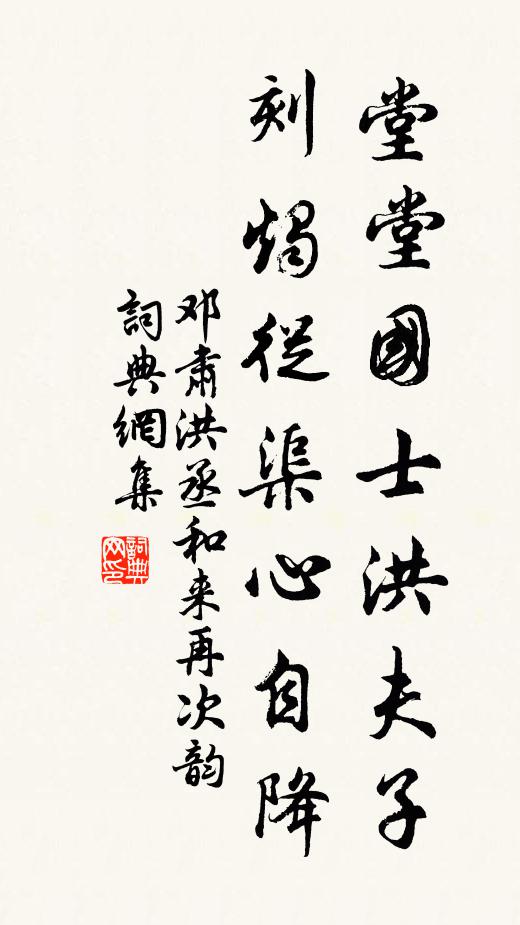 堂堂國士洪夫子
刻燭從渠心自降
邓肅洪丞和来再次韵
詞典網集
詞典网印